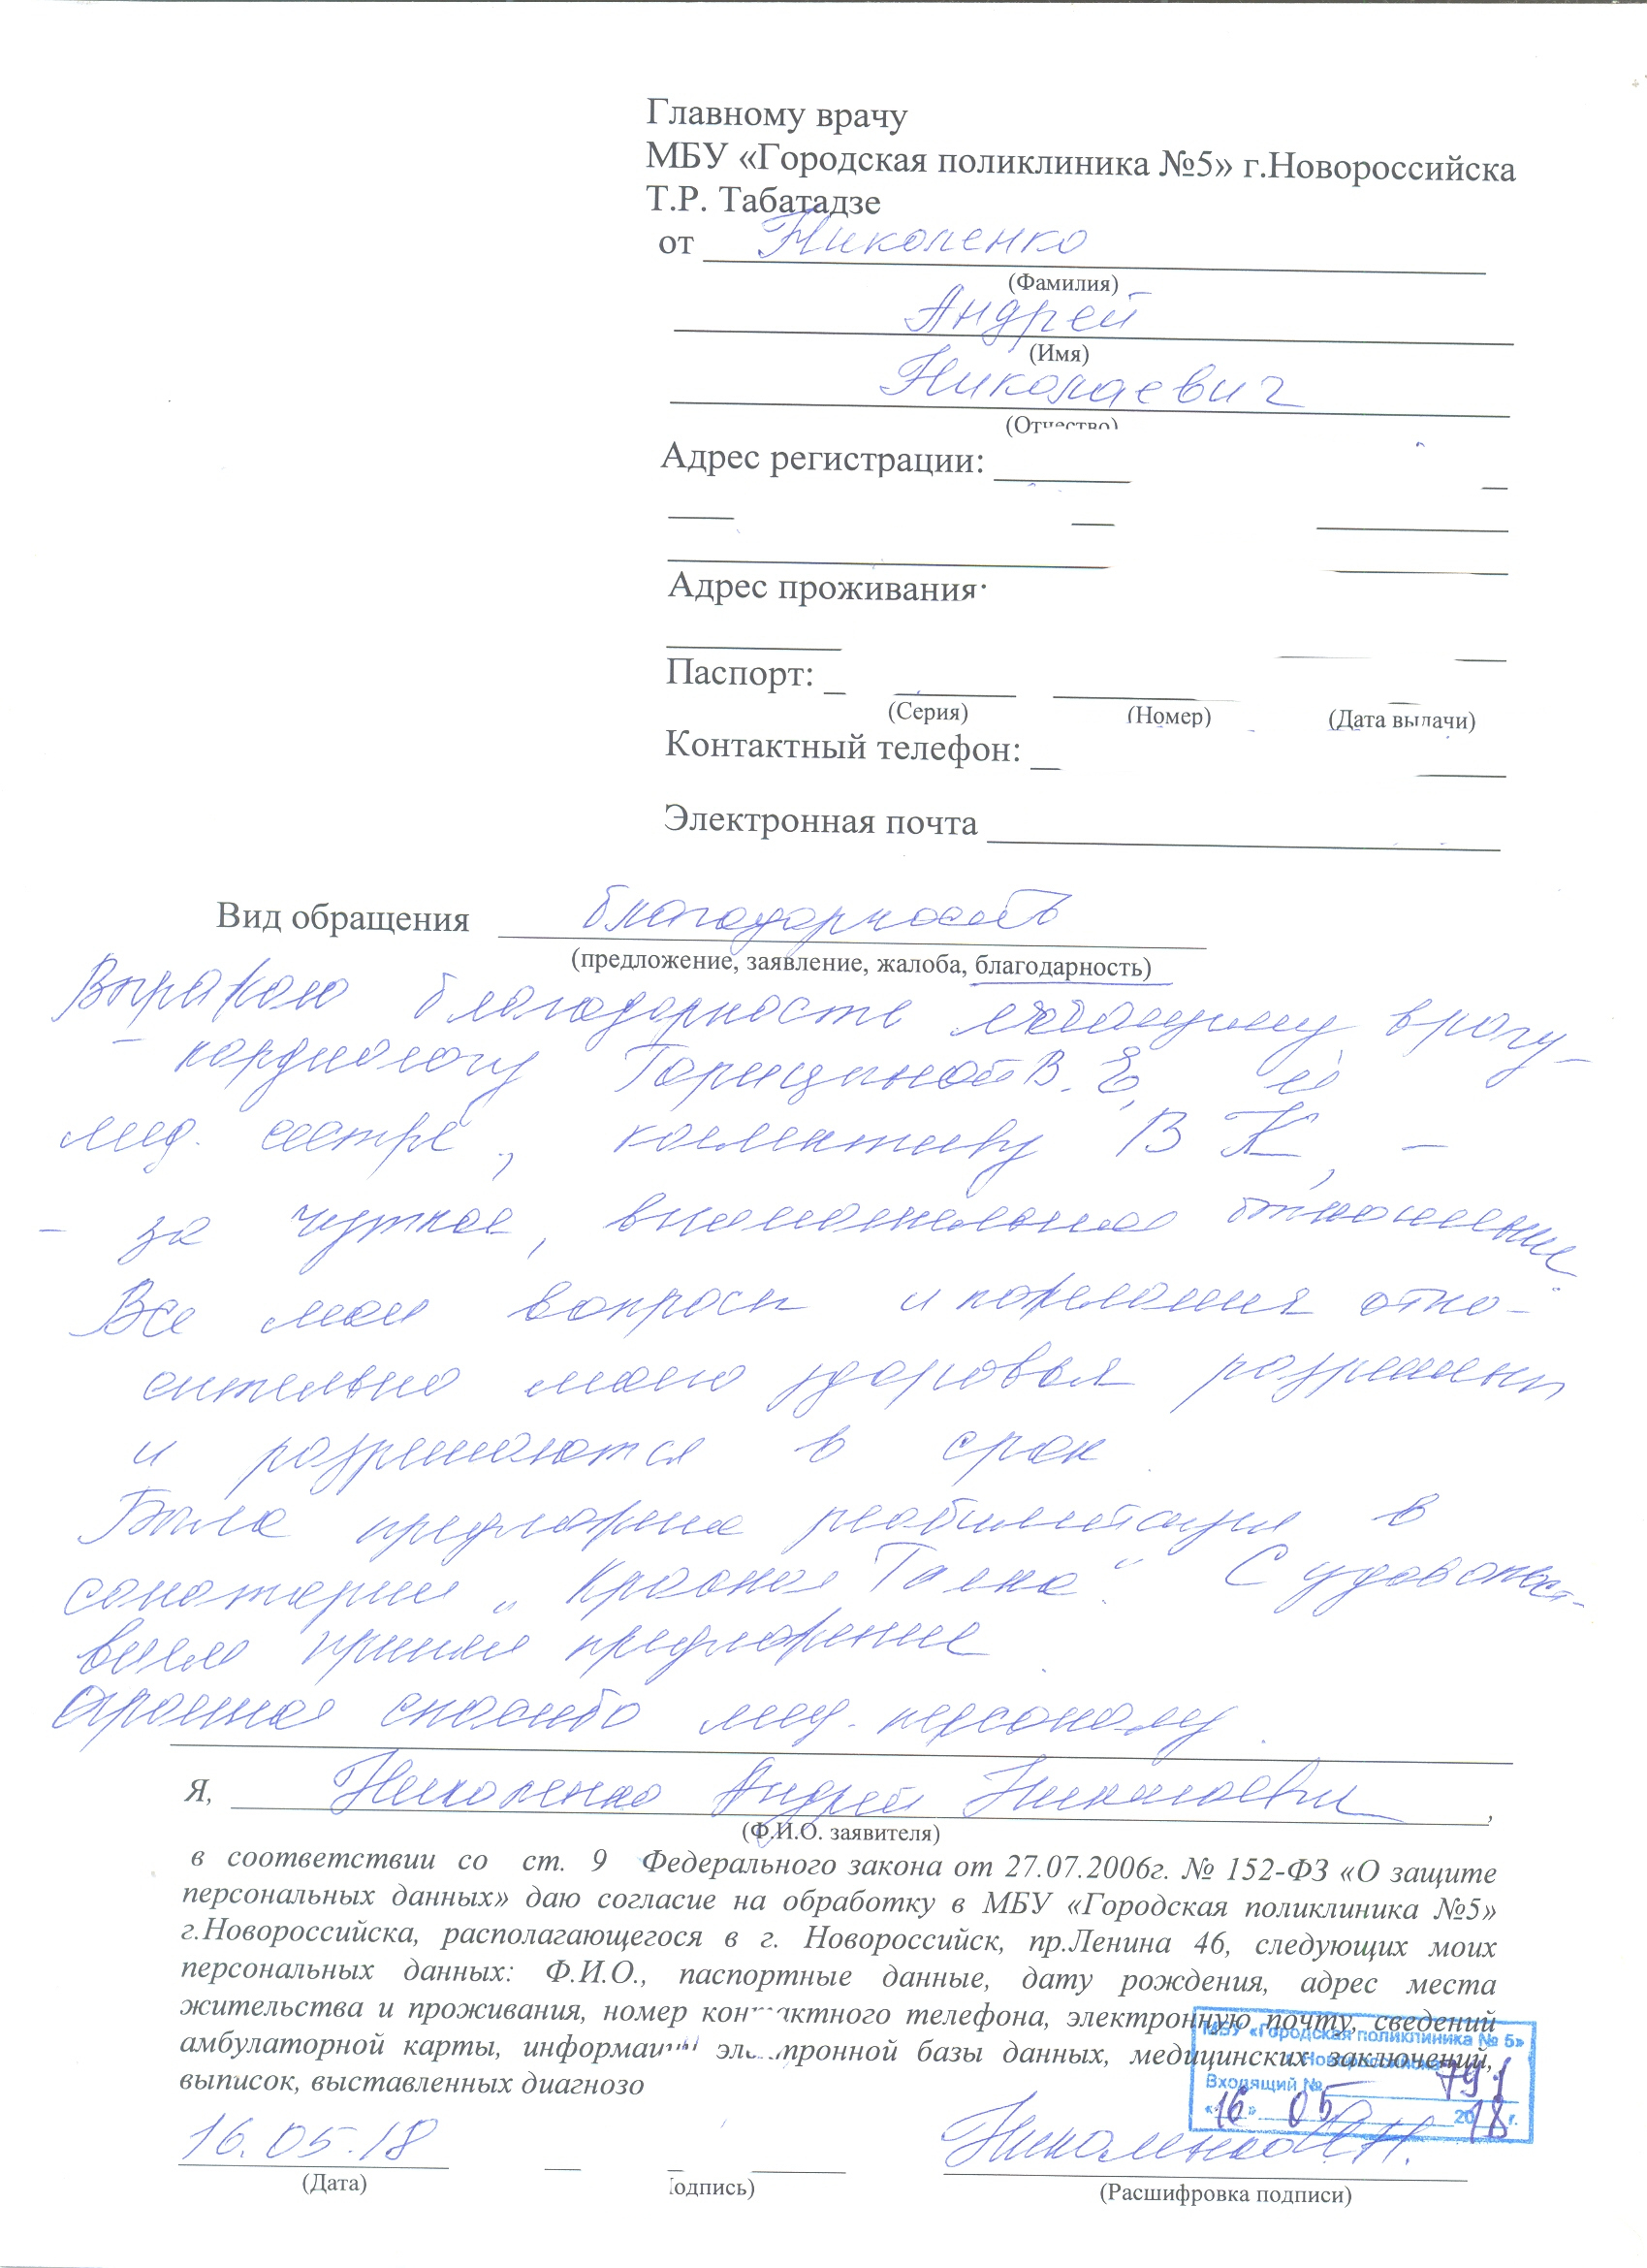 Главному врачу
МБУ «Городская поликлиника №5» г.Новороссийска
Т.Р. Табатадзе
от Николенко
(Фамилия)
Андрей
(Имя)
Николаевич
(Отчество)
Адрес регистрации:
Адрес проживания:
Паспорт:
(Серия) (Номер) (Дата выдачи)
Контактный телефон:
Электронная почта
Вид обращения благодарность
(предложение, заявление, жалоба, благодарность)
Выражаю благодарность лечащему врачу-
- кардиологу В.Е. и
мед. сестре, коллективу ВК, -
- за чуткое, внимательное отношение.
Все мои вопросы и пожелания отно-
сительно моего здоровья разрешены
и разрешаются в срок.
Была предложена реабилитация в
санатории „Красная Талка". С удовольст-
вием принял предложение.
Огромное спасибо мед. персоналу.
Я, Николенко Андрей Николаевич,
(Ф.И.О. заявителя)
в соответствии со ст. 9 Федерального закона от 27.07.2006г. № 152-ФЗ «О защите
персональных данных» даю согласие на обработку в МБУ «Городская поликлиника №5»
г.Новороссийска, располагающегося в г. Новороссийск, пр.Ленина 46, следующих моих
персональных данных: Ф.И.О., паспортные данные, дату рождения, адрес места
жительства и проживания, номер контактного телефона, электронную почту, сведений
амбулаторной карты, информации электронной базы данных, медицинских заключений,
выписок, выставленных диагнозо
МБУ «Городская поликлиника № 5»
г. Новороссийска
Входящий № 791
«16» 05 2018 г.
16.05.18 Николенко А.Н.
(Дата) одпись) (Расшифровка подписи)